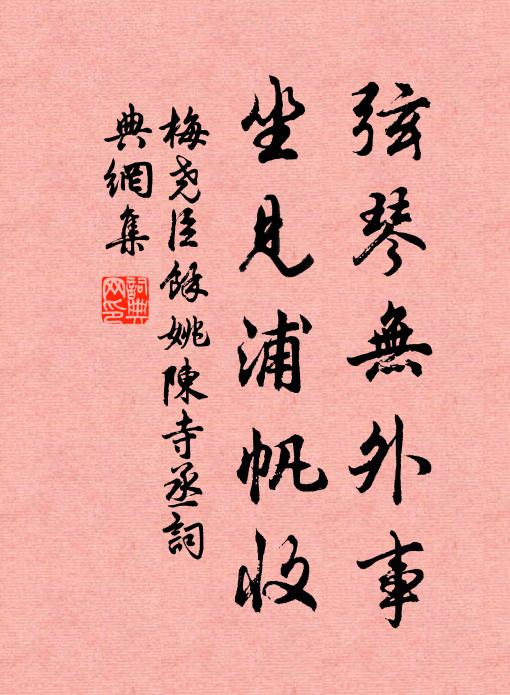 弦琴無外事
坐見浦帆收
梅尧臣餘姚陳寺丞詞
典網集
詞典
网印